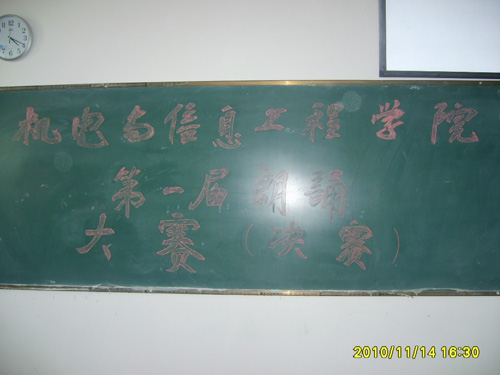 机电与信息工程学院
第一届朗诵
大赛（决赛）
2010/11/14 16:30